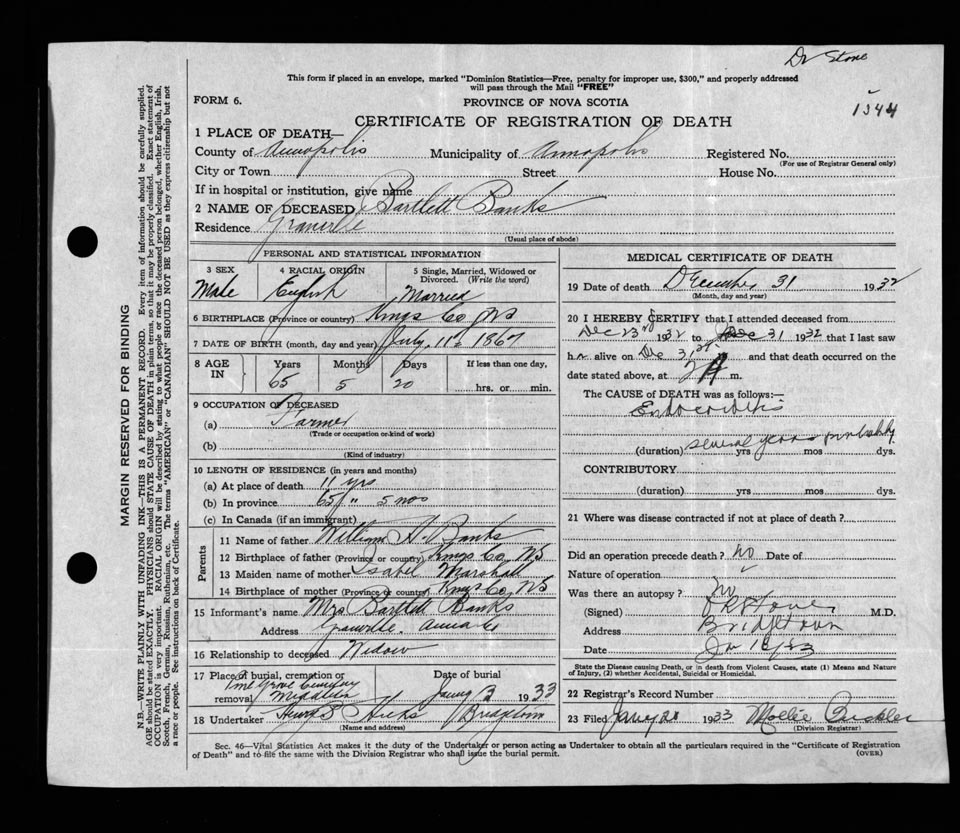 Dr Stone
This form if placed in an envelope, marked "Dominion Statistics—Free, penalty for improper use, $300," and properly addressed
will pass through the Mail "FREE"
FORM 6.
PROVINCE OF NOVA SCOTIA
1544
CERTIFICATE OF REGISTRATION OF DEATH
1 PLACE OF DEATH—
County of Annapolis Municipality of Annapolis Registered No.
(For use of Registrar General only)
City or Town Street House No.
If in hospital or institution, give name
2 NAME OF DECEASED Bartlett Banks
Residence Granville
(Usual place of abode)
PERSONAL AND STATISTICAL INFORMATION
3 SEX 4 RACIAL ORIGIN 5 Single, Married, Widowed or Divorced. (Write the word)
Male English Married
6 BIRTHPLACE (Province or country) Kings Co NS
7 DATE OF BIRTH (month, day and year) July 11th 1867
8 AGE IN Years Months Days If less than one day,
65 5 20 hrs. or min.
9 OCCUPATION OF DECEASED
(a) Farmer
(Trade or occupation or kind of work)
(b)
(Kind of industry)
10 LENGTH OF RESIDENCE (in years and months)
(a) At place of death 11 yrs
(b) In province 65 " 5 mos
(c) In Canada (if an immigrant)
Parents
11 Name of father William H. Banks
12 Birthplace of father (Province or country) Kings Co, NS
13 Maiden name of mother Isabel Marshall
14 Birthplace of mother (Province or country) Kings Co, NS
15 Informant's name Mrs Bartlett Banks
Address Granville. Anna Co
16 Relationship to deceased Widow
17 Place of burial, cremation or removal Date of burial
Pine Grove Cemetery
Middleton Jany 3 1933
18 Undertaker Hicks Bridgetown
(Name and address)
MEDICAL CERTIFICATE OF DEATH
19 Date of death December 31 1932
(Month, day and year)
20 I HEREBY CERTIFY that I attended deceased from
Dec 23rd 1932 to Dec 31 1932 that I last saw
h alive on Dec 31st and that death occurred on the
date stated above, at 2 A m.
The CAUSE of DEATH was as follows:—
Endocarditis
(duration) several years probably yrs mos dys.
CONTRIBUTORY
(duration) yrs mos dys.
21 Where was disease contracted if not at place of death?
Did an operation precede death? no Date of
Nature of operation
Was there an autopsy? no
(Signed) Stone M.D.
Address Bridgetown
Date
State the Disease causing Death, or in death from Violent Causes, state (1) Means and Nature
of Injury, (2) whether Accidental, Suicidal or Homicidal.
22 Registrar's Record Number
23 Filed Jany 1933 Mollie
(Division Registrar)
Sec. 46—Vital Statistics Act makes it the duty of the Undertaker or person acting as Undertaker to obtain all the particulars required in the "Certificate of Registration
of Death" and to file the same with the Division Registrar who shall issue the burial permit.
(OVER)
MARGIN RESERVED FOR BINDING
N.B.—WRITE PLAINLY WITH UNFADING INK—THIS IS A PERMANENT RECORD. Every item of information should be carefully supplied.
AGE should be stated EXACTLY. PHYSICIANS should STATE CAUSE OF DEATH in plain terms, so that it may be properly classified. Exact statement of
OCCUPATION is very important. RACIAL ORIGIN will be described by stating to what people or race the deceased person belonged, whether English, Irish,
Scotch, French, German, Russian, Ruthenian, etc. The terms "AMERICAN" or "CANADIAN" SHOULD NOT BE USED as they express citizenship but not
a race or people. See instructions on back of Certificate.